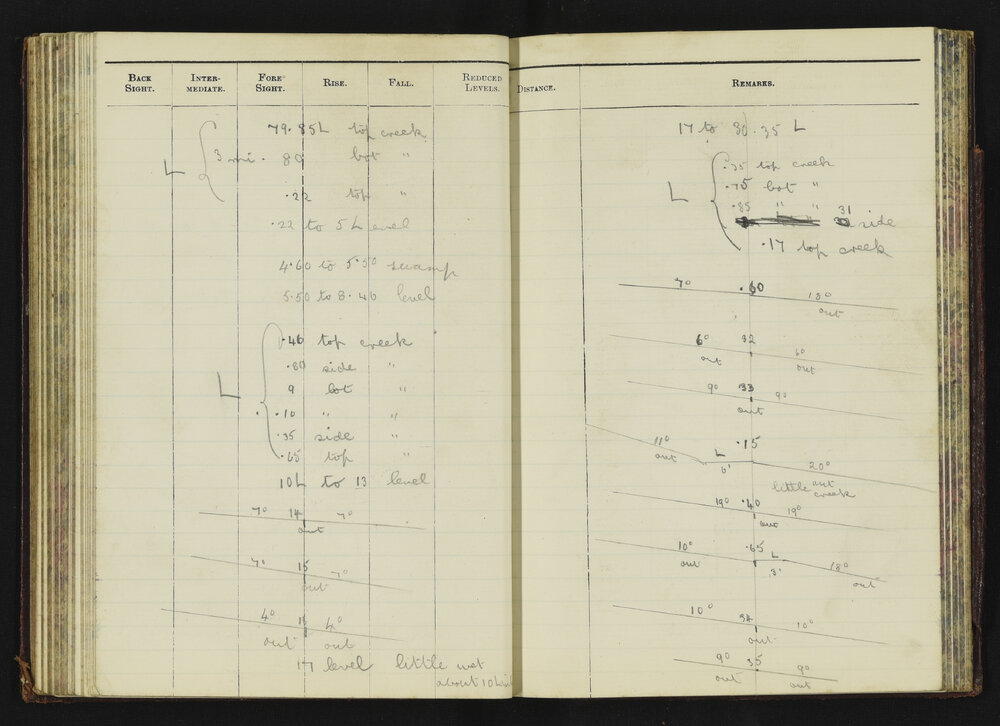 BACK SIGHT. INTER-MEDIATE. FORE SIGHT. RISE. FALL. REDUCED LEVELS.
79.85L top creek
L 3 mi. 80 bot "
.22 top "
.22 to 5 Level
4.60 to 5.50 swamp
5.50 to 8.40 level
.46 top creek
.80 side "
L 9 bot "
.10 " "
.35 side "
.65 top "
10L to 13 level
7° 14 7°
out
7° 15 7°
out
4° 4°
out out
17 level little wet
about 10
DISTANCE. REMARKS.
17 to 30.35 L
.35 top creek
L .75 bot "
.85 " " 31
side
.17 top creek
7° .60 18°
out
6° 32 6°
out out
9° 33 9°
out
11° .15
out L 20°
6' out
little creek
19° .40 19°
out
10° .65 L
out 3' 18°
out
10° 34 10°
out
9° 35 9°
out out